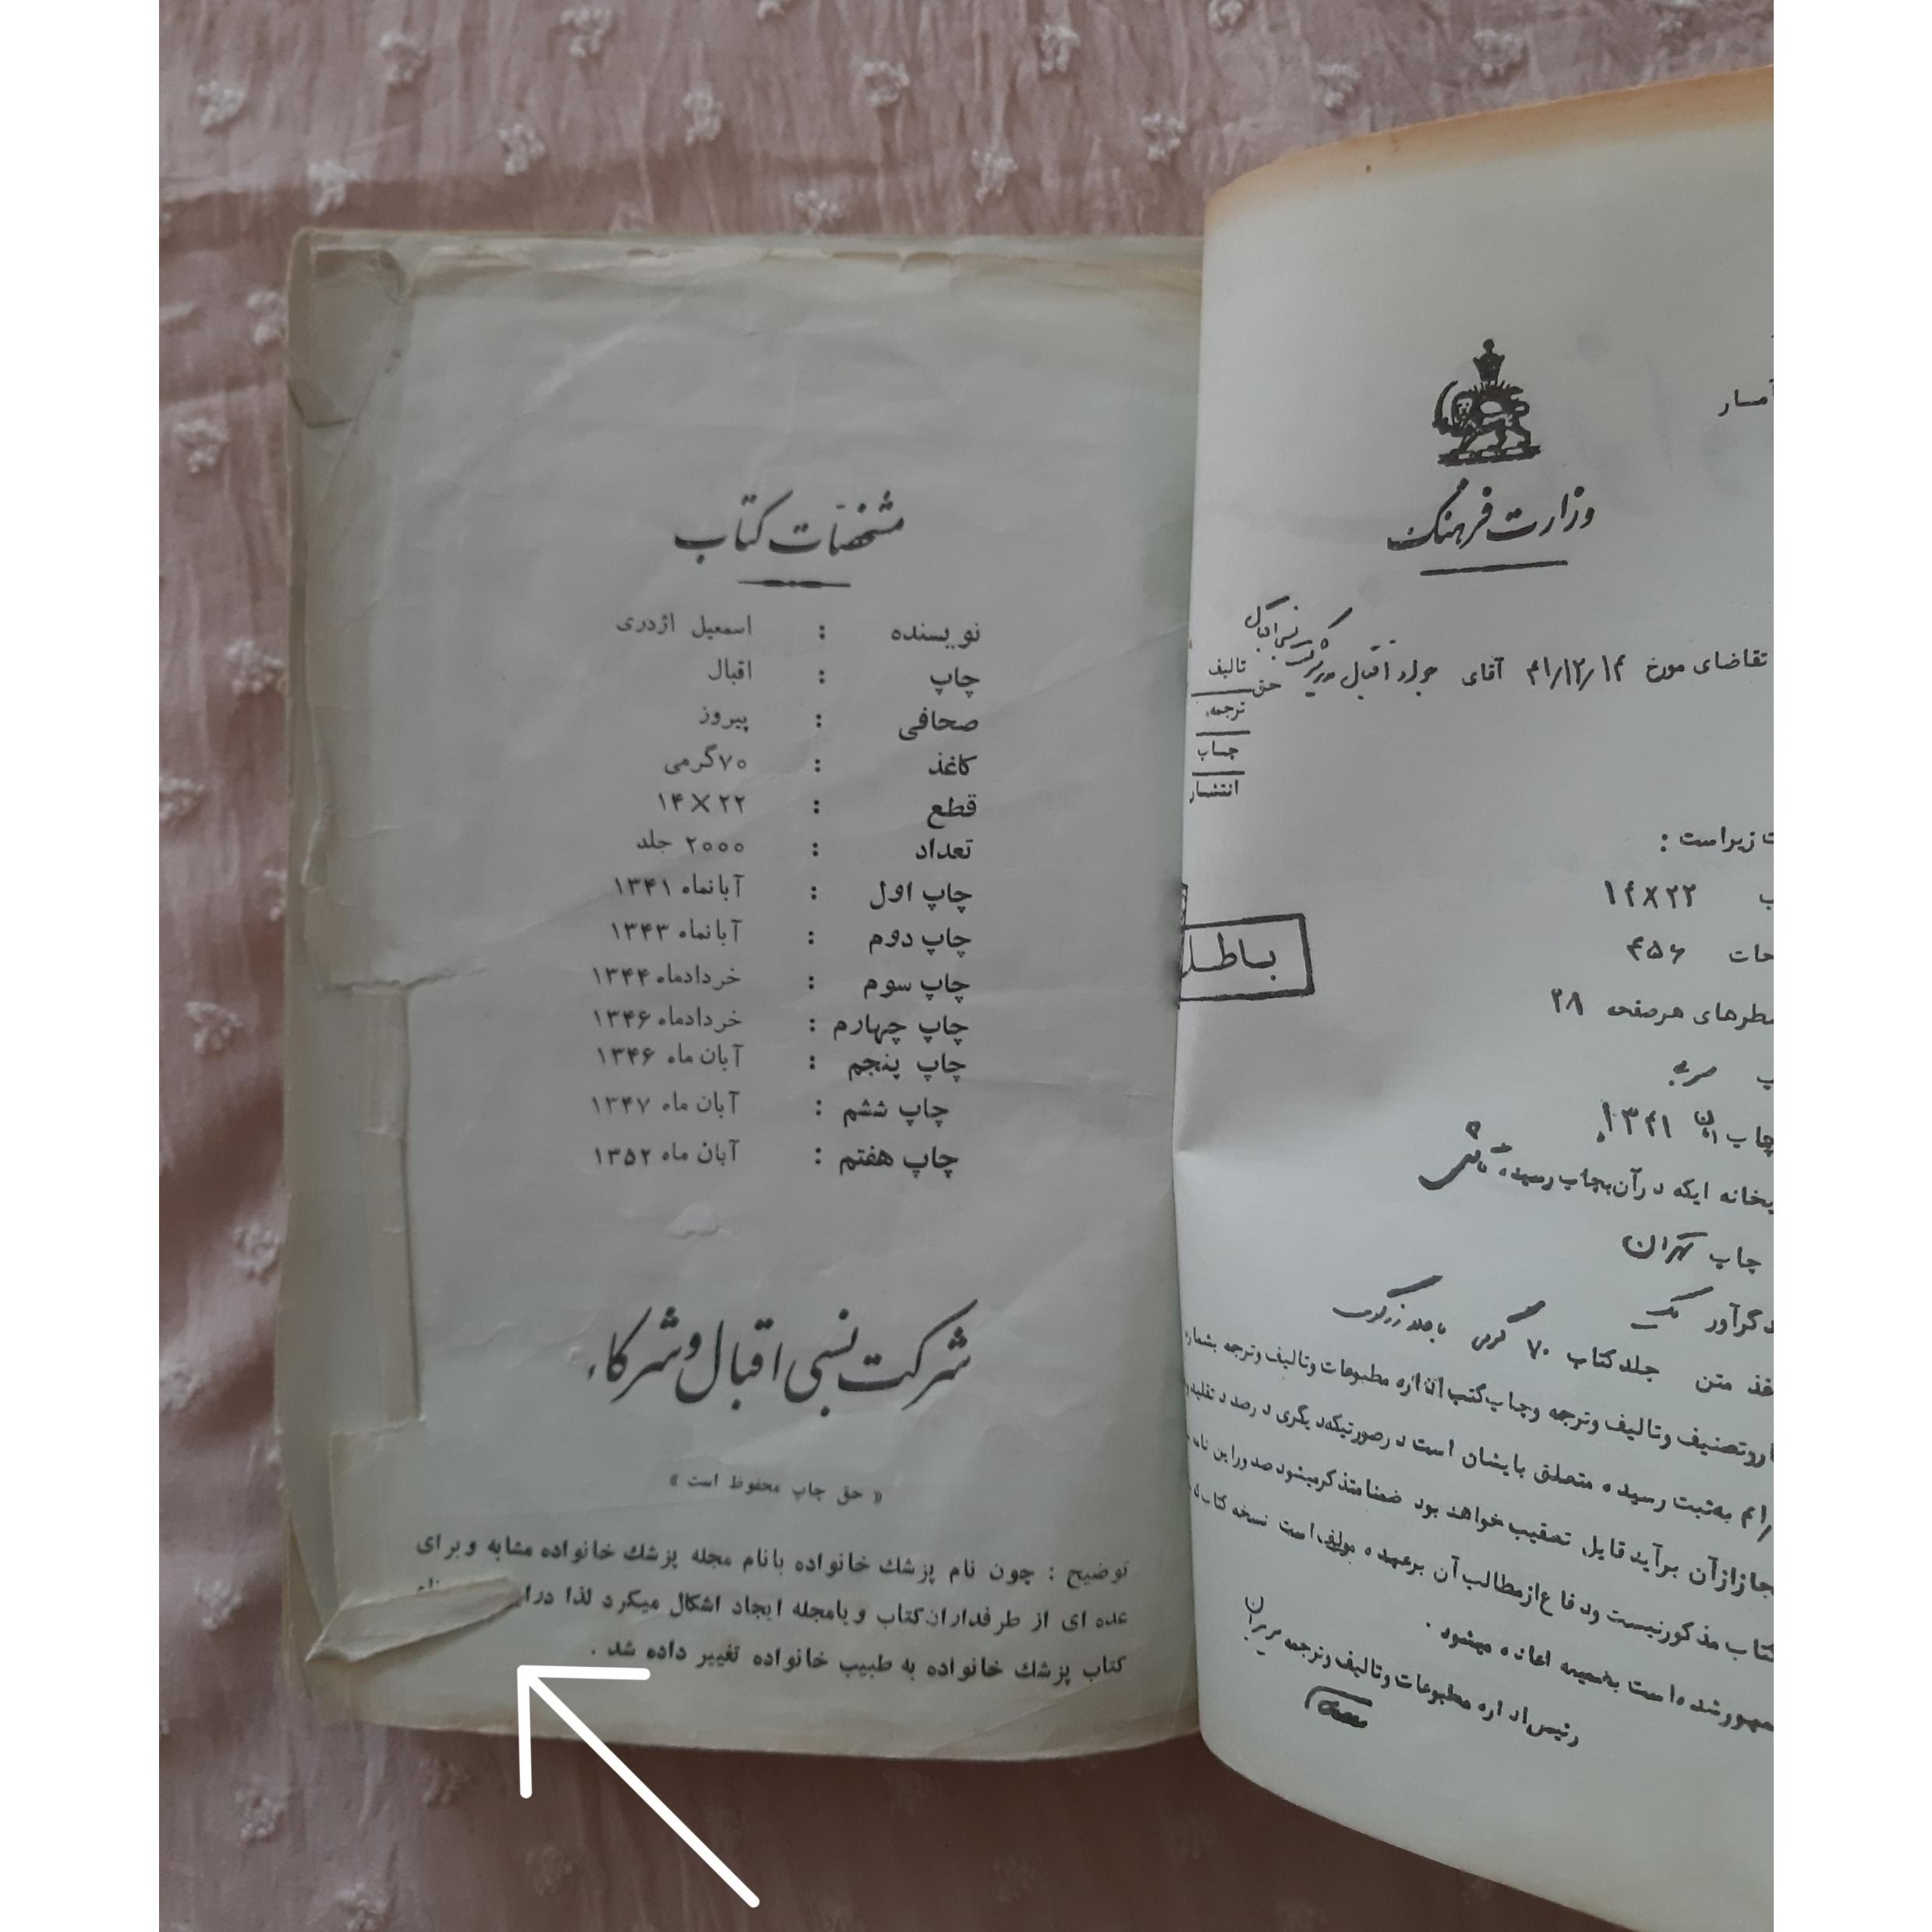 مشخصات کتاب
نویسنده : اسمعیل اژدری
چاپ : اقبال
صحافی : پیروز
کاغذ : ۷۰گرمی
قطع : ۲۲ × ۱۴
تعداد : ۲۰۰۰ جلد
چاپ اول : آبانماه ۱۳۴۱
چاپ دوم : آبانماه ۱۳۴۳
چاپ سوم : خردادماه ۱۳۴۴
چاپ چهارم : خردادماه ۱۳۴۶
چاپ پنجم : آبان ماه ۱۳۴۶
چاپ ششم : آبان ماه ۱۳۴۷
چاپ هفتم : آبان ماه ۱۳۵۲
شرکت نسبی اقبال و شرکاء
« حق چاپ محفوظ است »
توضیح : چون نام پزشك خانواده بانام مجله پزشك خانواده مشابه و برای
عده ای از طرفداران کتاب و یامجله ایجاد اشکال میکرد لذا
کتاب پزشك خانواده به طبیب خانواده تغییر داده شد .
وزارت فرهنگ
تقاضای مورخ ۴۱/۱۲/۱۴ آقای جواد اقبال مدیر شرکت نسبی اقبال
حق
تالیف
ترجمه
چاپ
انتشار
زیراست :
۱۴×۲۲
۴۵۶
باطل
سطرهای هرصفحه ۲۸
سربی
چاپ ۱۳۴۱
درآن بچاب رسیده
چاپ تهران
جلد کتاب ۷۰ گرمی
متن
وتصنیف وتالیف وترجمه وچاپ کتب اداره مطبوعات وتالیف وترجمه بشماره
به ثبت رسیده متعلق بایشان است درصورتیکه دیگری درصدد تقلید و
ازآن برآید قابل تعقیب خواهد بود ضمنا متذکرمیشود صدوراین نامه
کتاب مذکورنیست ودفاع ازمطالب آن برعهده مولف است نسخه کتاب
شده است بضمیمه اعاده میشود .
رئیس اداره مطبوعات وتالیف وترجمه